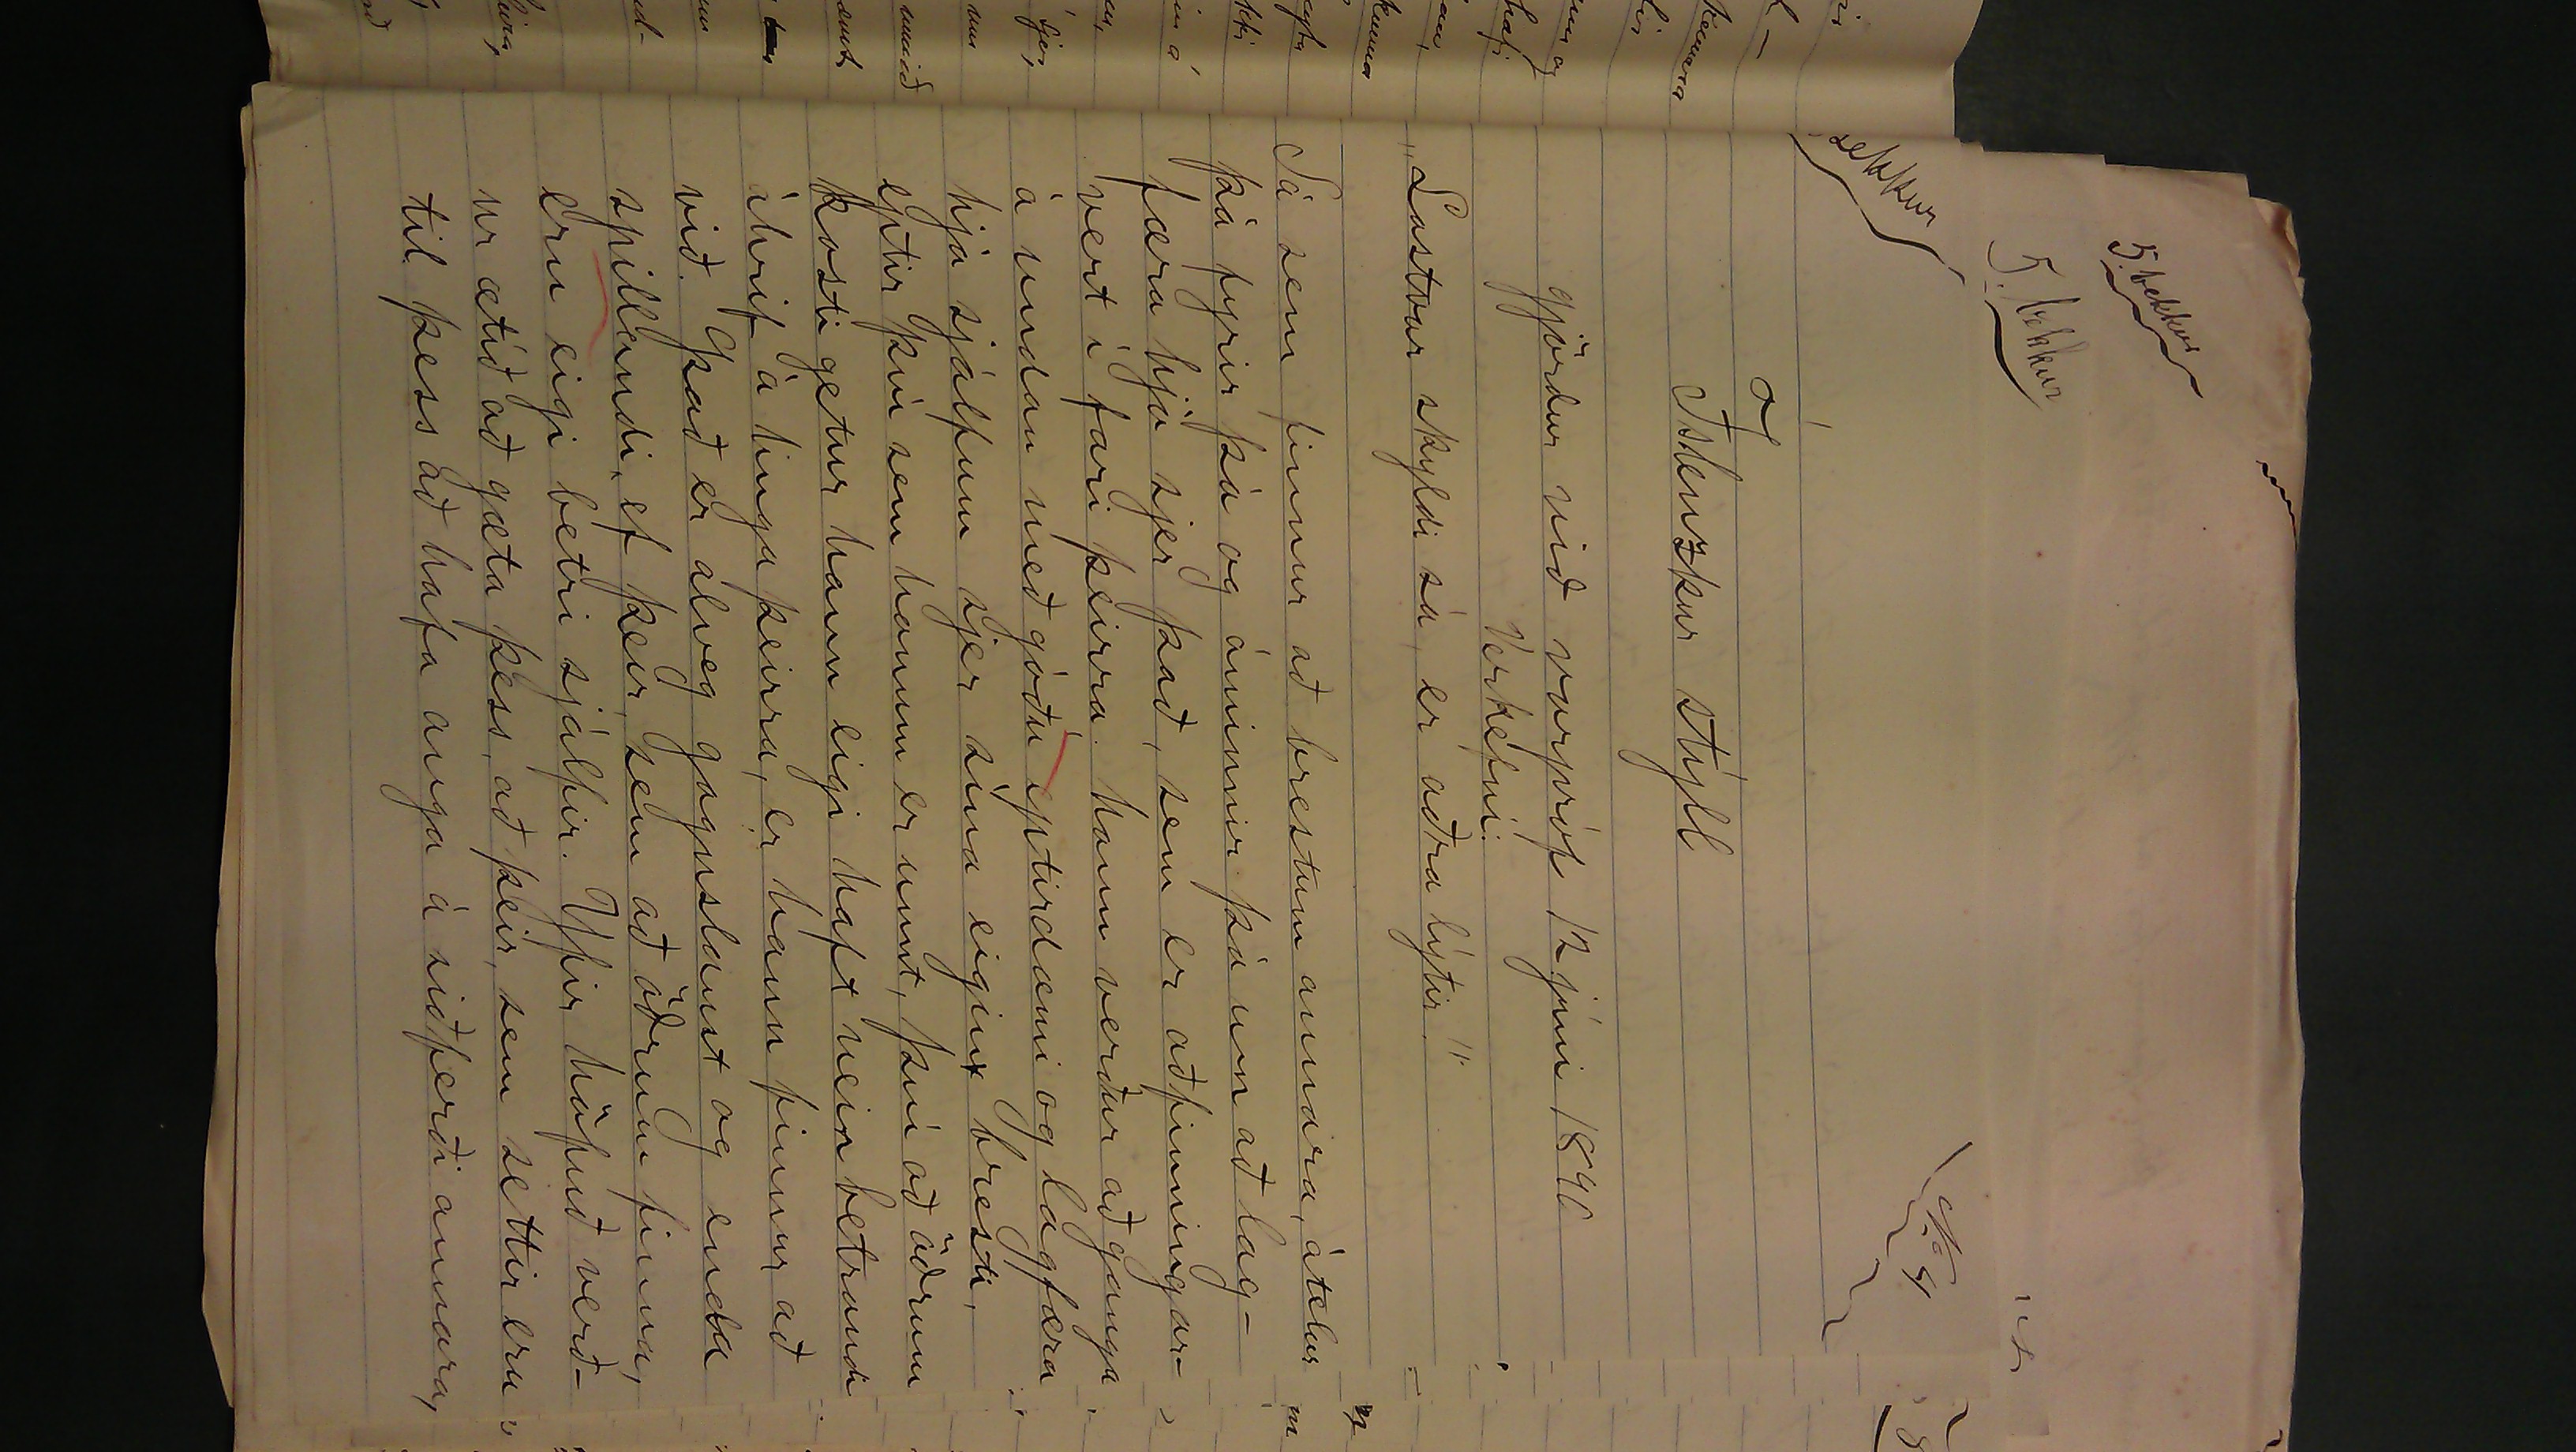 5. bekkur
5. bekkur
bekkur
No 4
Íslenzkur stýll
gjörður við vorpróf 12 júni 1890
Verkefni:
„Lastvar skyldi sá, er aðra lýtir."
Sá sem finnur að brestum annara, átelur
þá fyrir þá og áminnir þá um að lag-
færa hjá sjer það, sem er aðfinningar-
vert í fari þeirra. hann verður að ganga
á undan með góðu eptirdæmi og lagfæra
hjá sjálfum sjer sína eigin bresti,
eptir því sem honum er unnt, því að öðrum
kosti getur hann eigi haft nein betrandi
áhrif á hinga þeirra, er hann finnur að
við. Það er alveg gagnslaust og enda
spillandi, ef þeir, sem að öðrum finna,
eru eigi betri sjálfir. Yfir höfuð verð-
ur ætíð að gæta þess, að þeir, sem settir eru
til þess að hafa auga á siðferði annara,